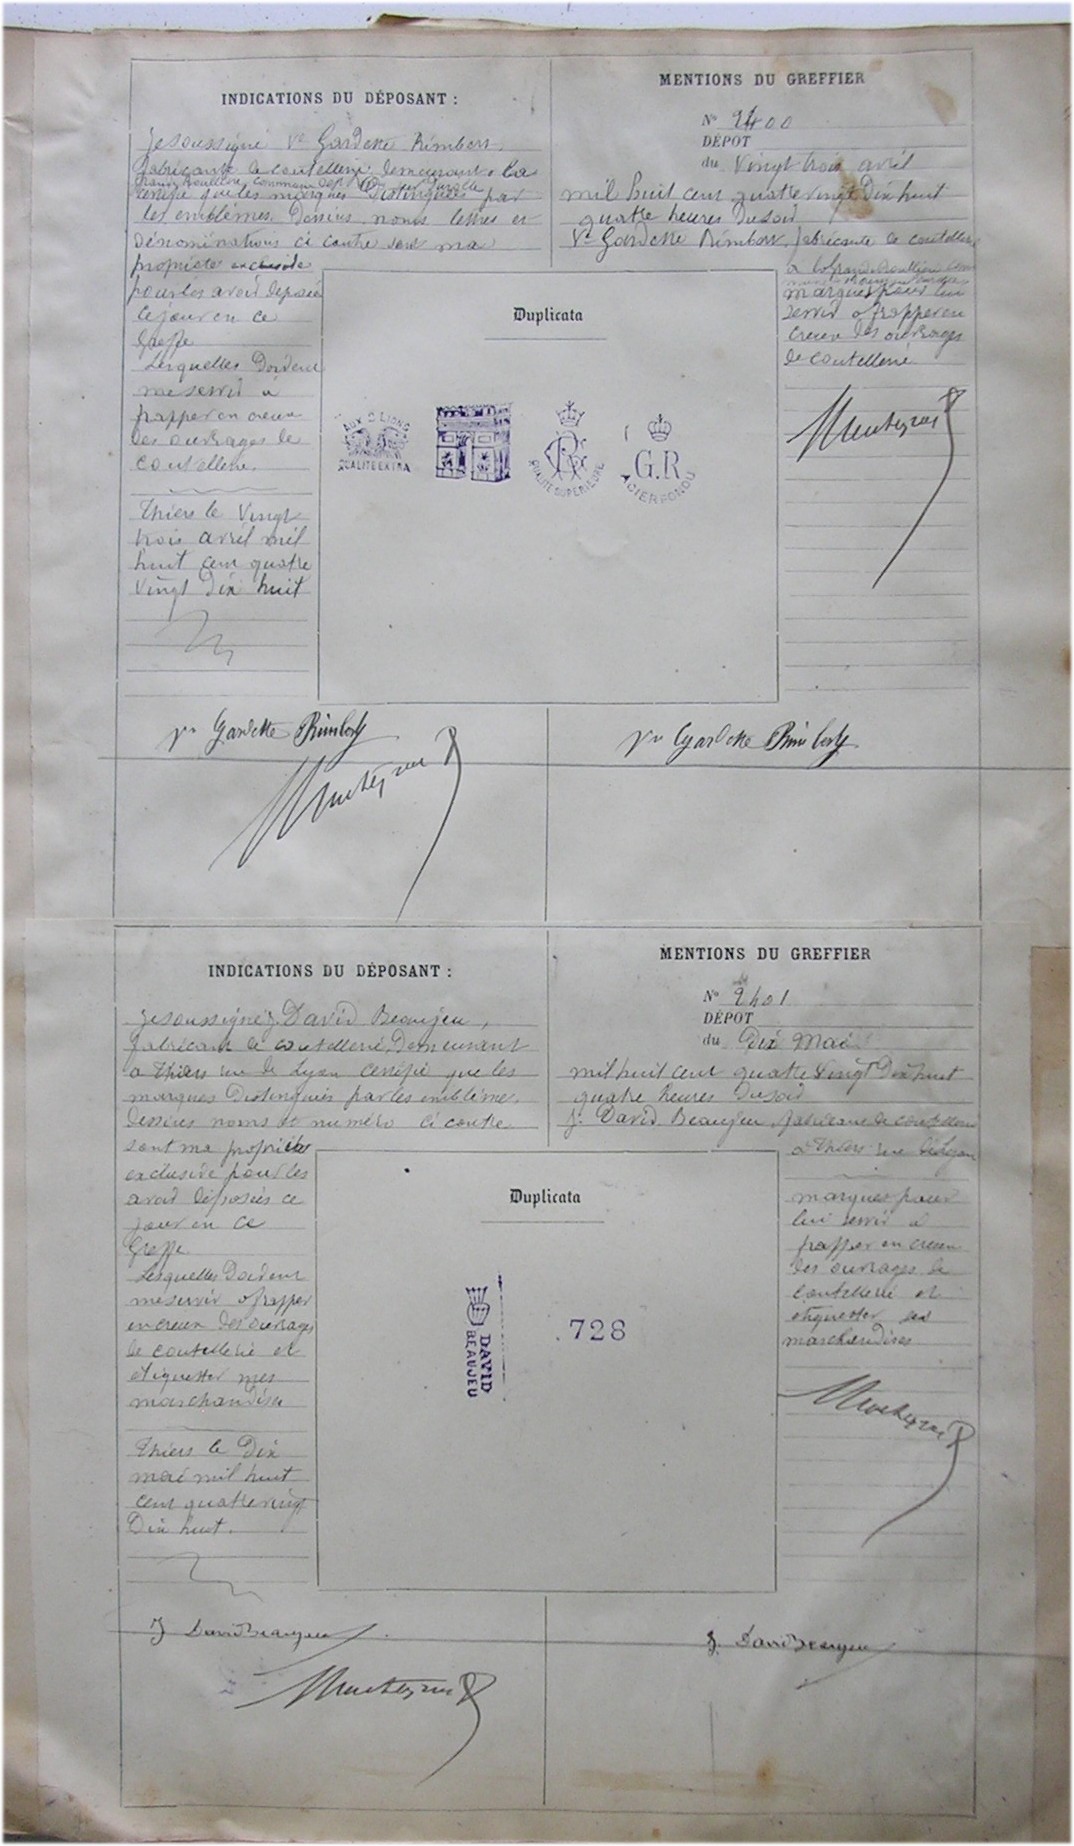 INDICATIONS DU DÉPOSANT :
Je soussigné Ve Gardette Rimbert,
fabricante de coutellerie demeurant à la
certifie que les marques distinguées par
les emblêmes. Dessins, noms, lettres et
Dénominations ci contre sont ma
propriété exclusive
pour les avoir déposée
ce jour en ce
Greffe
Lesquelles Doivent
me servir à
frapper en creux
des ouvrages de
coutellerie.
Thiers le Vingt
trois avril mil
huit cent quatre
vingt Dix huit
MENTIONS DU GREFFIER
No 2400
DÉPOT
du Vingt trois avril
mil huit cent quatre vingt Dix huit
quatre heures Du soir
Ve Gardette Rimbert, fabricante de coutellerie
marques pour lui
servir à frapper en
creux des ouvrages
de coutellerie
Duplicata
AUX 2 LIONS
QUALITE EXTRA
QUALITE SUPERIEURE
G.R
ACIER FONDU
Ve Gardette Rimbert
Ve Gardette Rimbert
INDICATIONS DU DÉPOSANT :
Je soussigné J. David Beaujeu,
fabricant de coutellerie, Demeurant
à Thiers rue de Lyon certifie que les
marques Distinguées par les emblême,
Dessins noms et numéro ci contre
sont ma propriété
exclusive pour les
avoir déposées ce
jour en ce
Greffe
Lesquelles Doivent
me servir à frapper
en creux des ouvrages
de coutellerie et
étiquetter mes
marchandises
Thiers le Dix
mai mil huit
cent quatre vingt
Dix huit.
MENTIONS DU GREFFIER
No 2401
DÉPOT
du Dix Mai
mil huit cent quatre vingt Dix huit
quatre heures Du soir
J. David Beaujeu, fabricant de coutellerie
à Thiers rue de Lyon
marques pour
lui servir à
frapper en creux
des ouvrages de
coutellerie et
étiquetter ses
marchandises
Duplicata
DAVID
BEAUJEU
728
J David Beaujeu
J. David Beaujeu